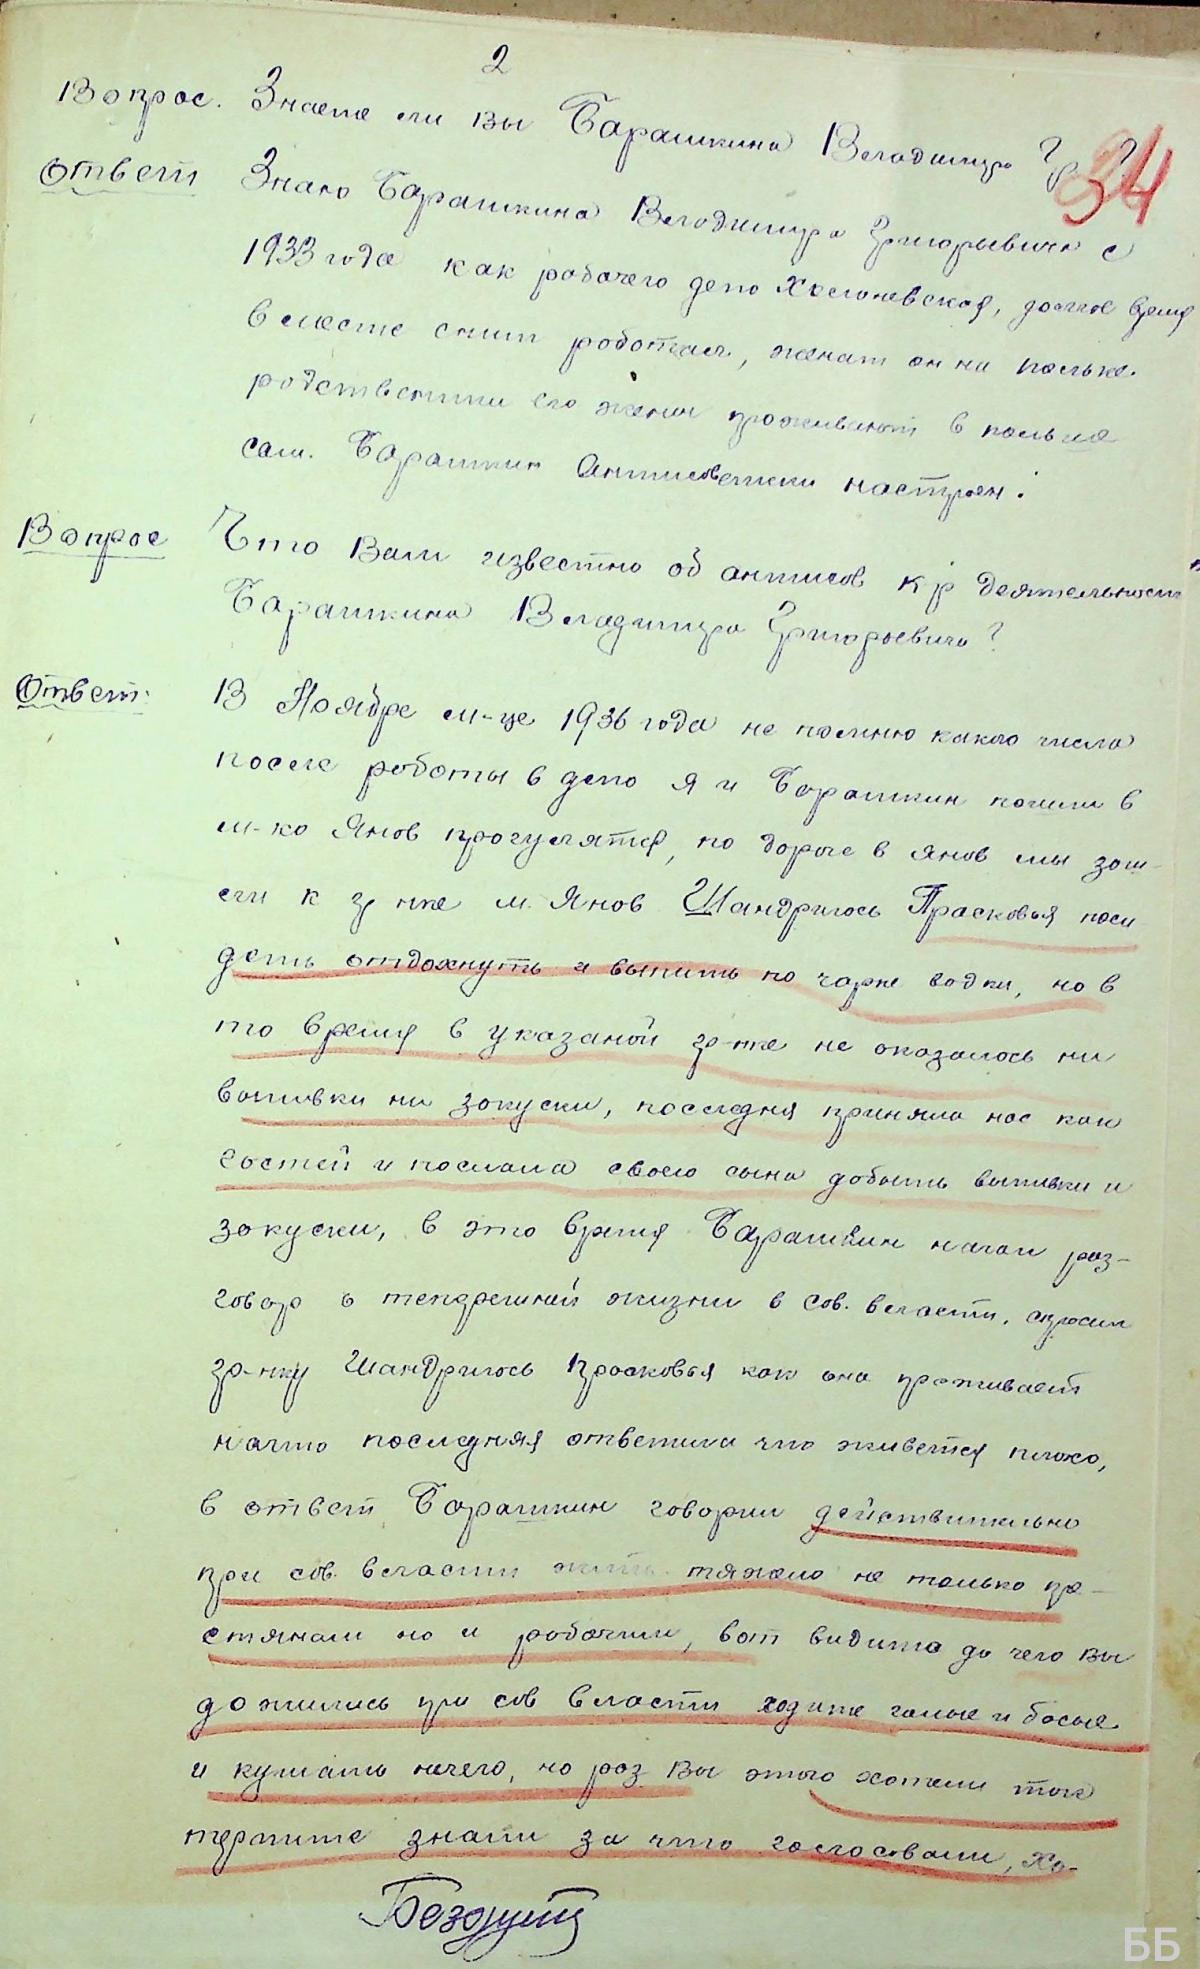 2
34
Вопрос. Знаете ли вы Барашкина Владимира Гр.?
Ответ Знаю Барашкина Владимира Григорьевича с
1933 года как рабочего депо Хвойневская, долгое время
вместе сним работал, женат он на польке.
родственники его жены проживают в польше
сам. Барашкин Антисоветски настроен.
Вопрос Что Вам известно об антисов кр деятельности
Барашкина Владимира Григорьевича?
Ответ: В Ноябре м-це 1936 года не помню какого числа
после работы в депо я и Барашкин пошли в
м-ко Янов прогулятся, по дороге в янов мы заш-
ли к гр нке м. Янов Шандрилось Прасковья поси
деть отдохнуть и выпить по чарке водки, но в
то время в указаной гр-нке не оказалось ни
выпивки ни закуски, последняя приняла нас как
гостей и послала своего сына добыть выпивки и
закуски, в это время Барашкин начал раз-
говор о теперешней жизни в сов. власти, спросил
гр-нку Шандрилось Прасковья как она проживает
на что последняя ответила что живется плохо,
в ответ Барашкин говорил действительно
при сов. власти жить тяжело не только кре-
стянам но и рабочим, вот видите до чего вы
дожились при сов власти ходите голые и босые
и кушать нечего, но раз вы этого хотели так
терпите знали за что голосовали, Хо-
ББ